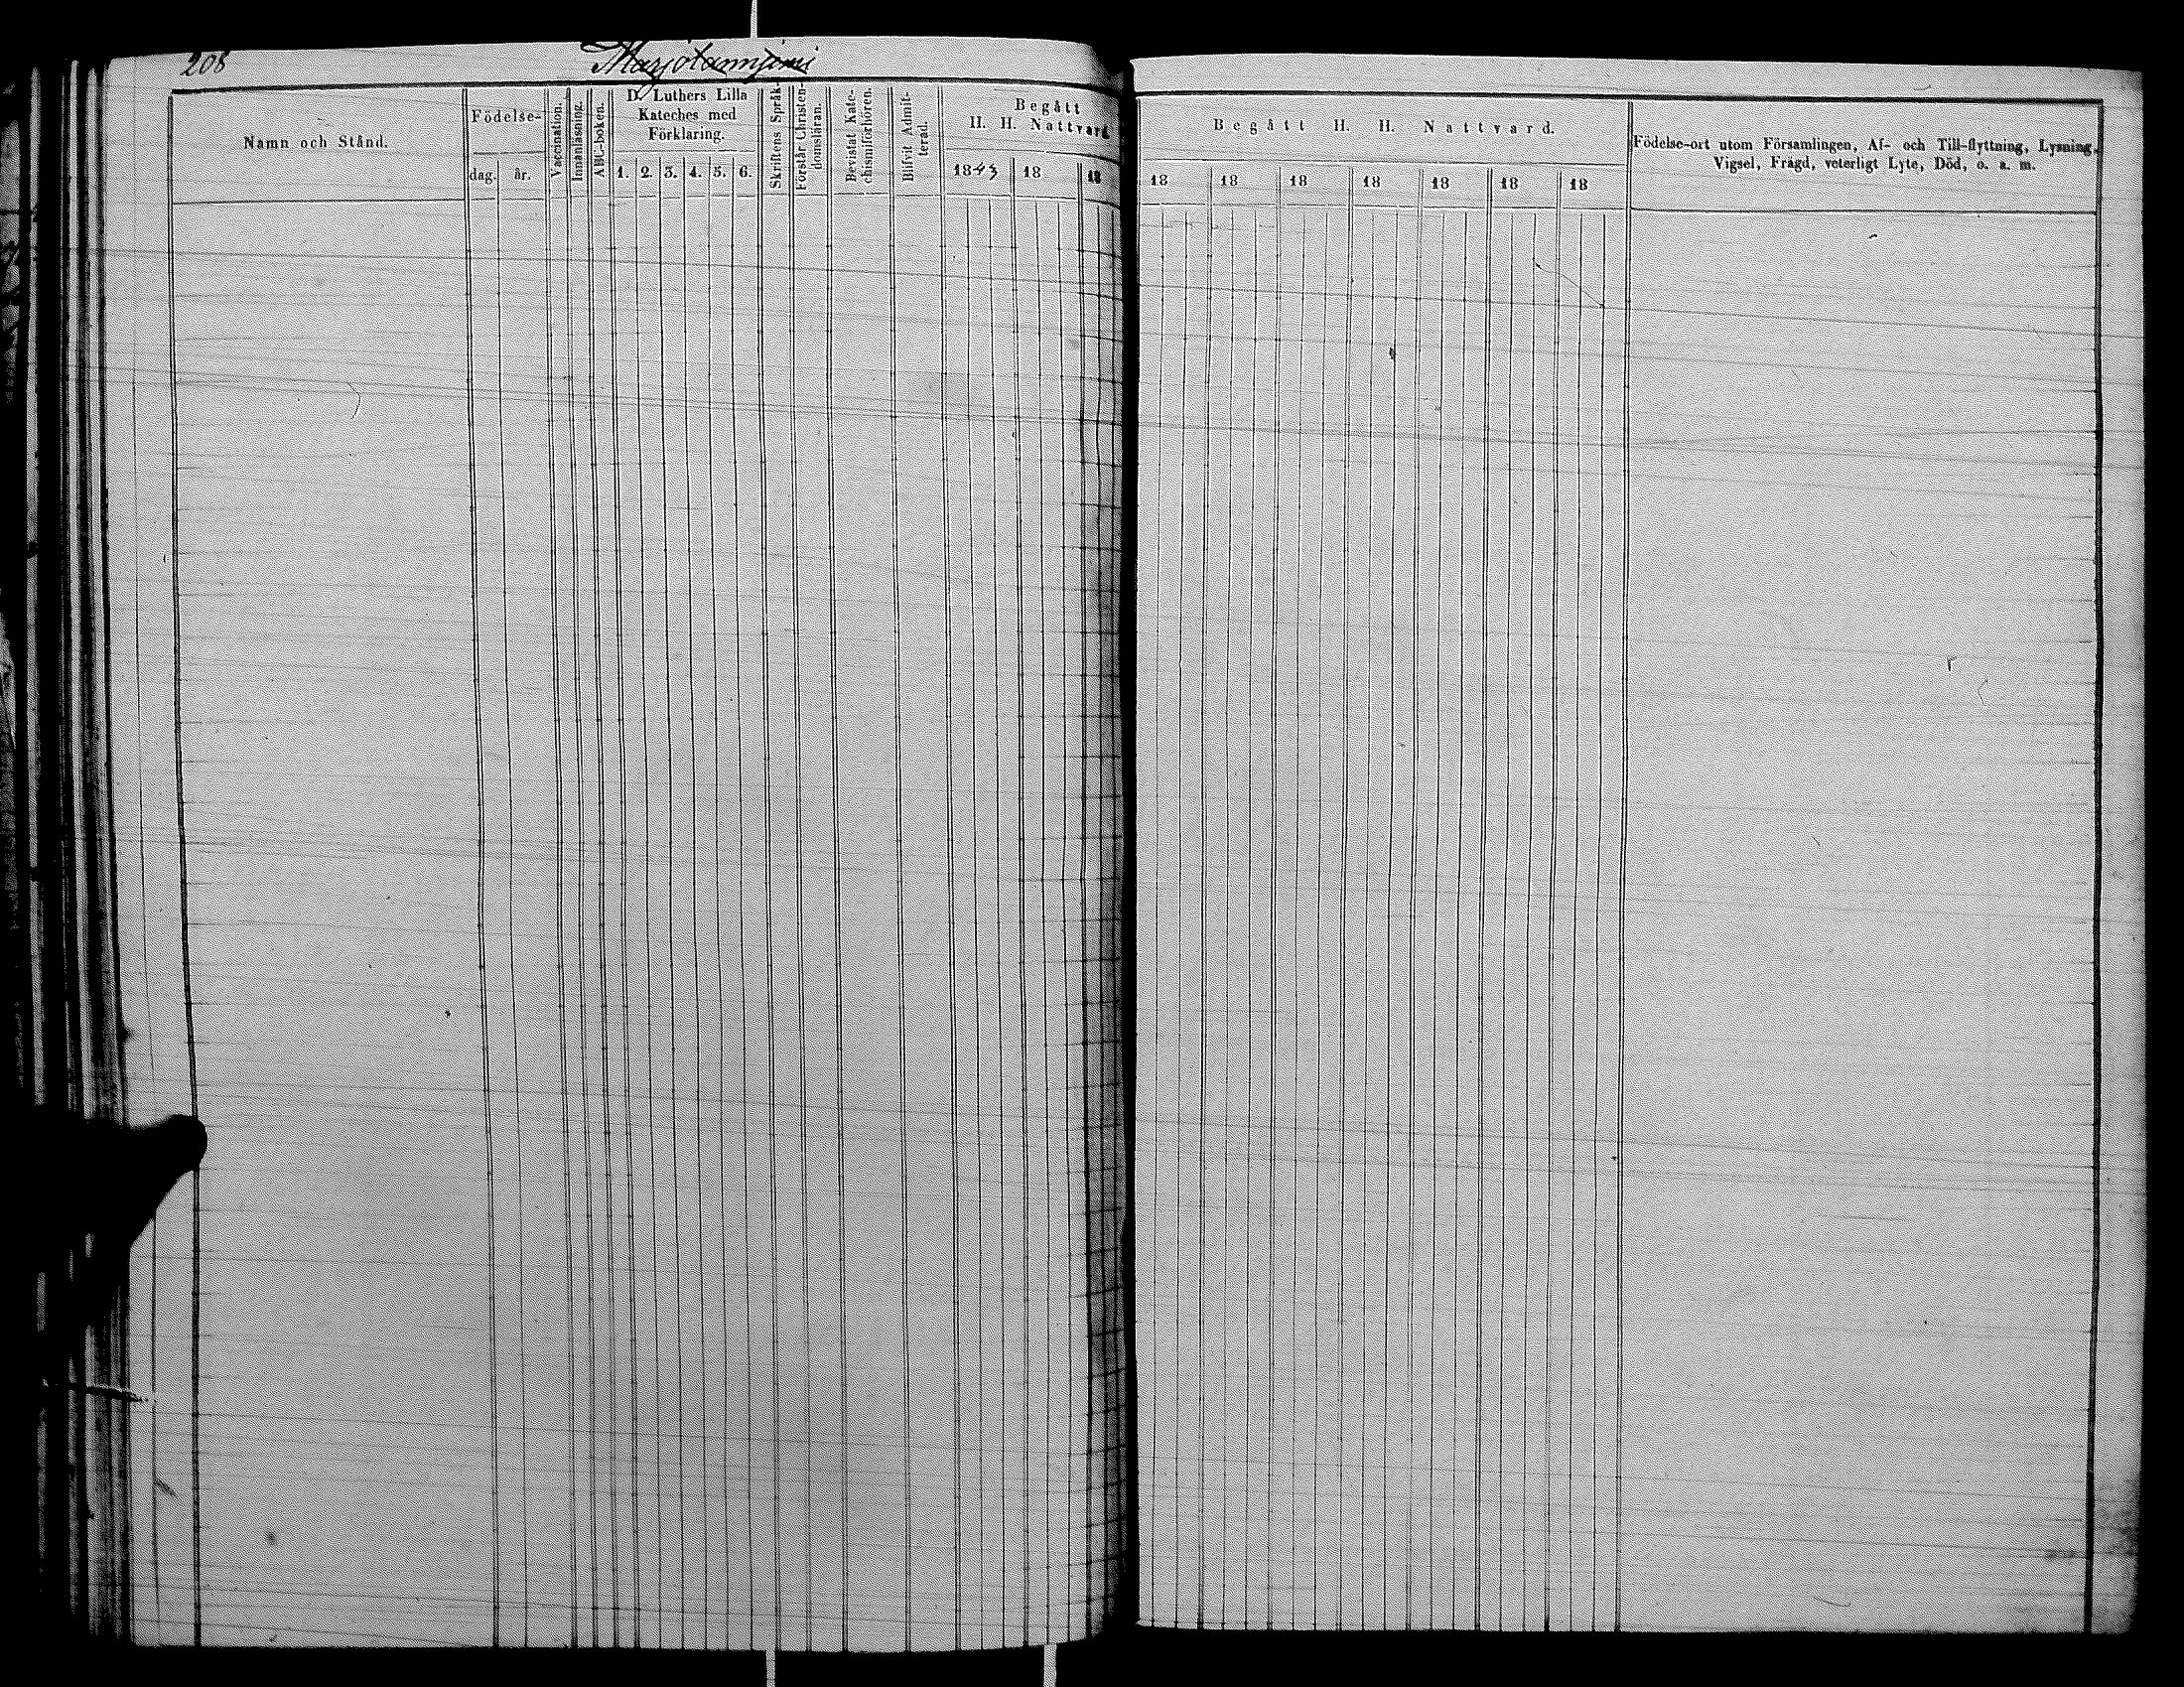 208
Namn och Stånd.
Födelse-
dag. år.
Vaccination.
Innanläsning.
ABC-boken.
D. Luthers Lilla
Kateches med
Förklaring.
1. 2. 3. 4. 5. 6.
Skriftens Språk.
Förstår Christen-
domsläran.
Bevistat Kate-
chismiförhören.
Blifvit Admit-
terad.
Begått
H. H. Nattvard
1843 18 18
Begått H. H. Nattvard.
18 18 18 18 18 18 18
Födelse-ort utom Församlingen, Af- och Till-flyttning, Lysning,
Vigsel, Frägd, veterligt Lyte, Död, o. a. m.